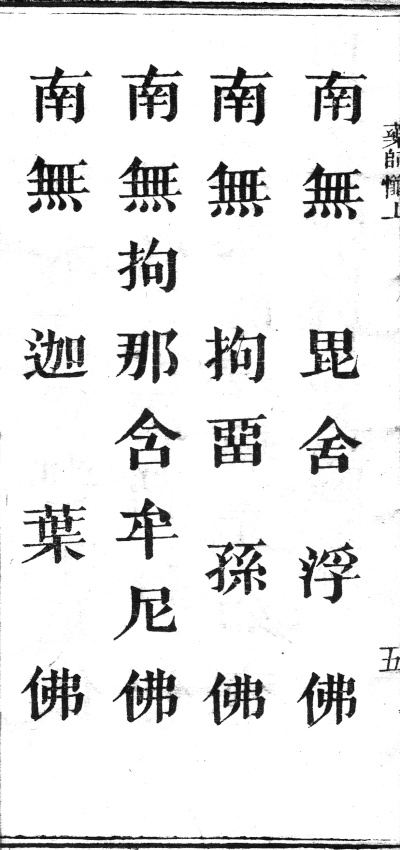 藥師懺上
五
南無毘舍浮佛
南無拘畱孫佛
南無拘那含牟尼佛
南無迦葉佛